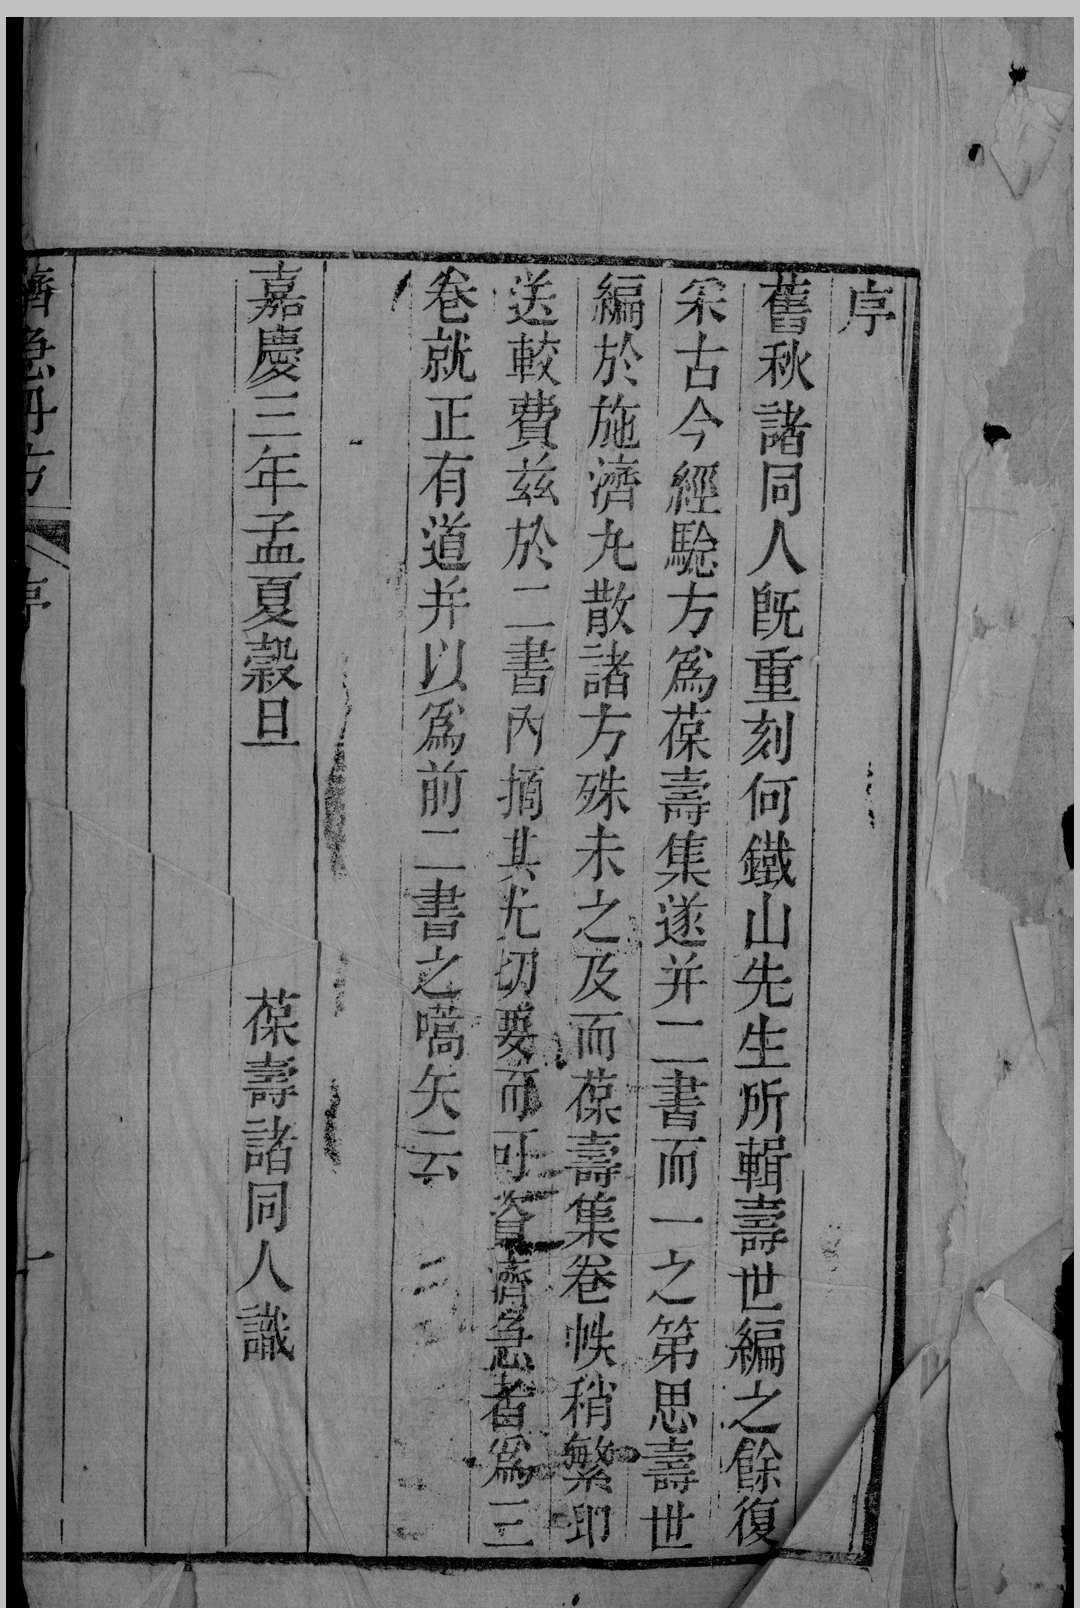 序
舊秋諸同人旣重刻何鐵山先生所輯壽世編之餘復
罙古今經騐方爲葆壽集遂并二書而一之第思壽世
編於施濟丸散諸方殊未之及而葆壽集卷帙稍繁印
送較費兹於二書內摘其尤切要而可資濟急者爲三
卷就正有道并以爲前二書之嚆矢云
嘉慶三年孟夏穀旦 葆壽諸同人識
濟急丹方 序 一